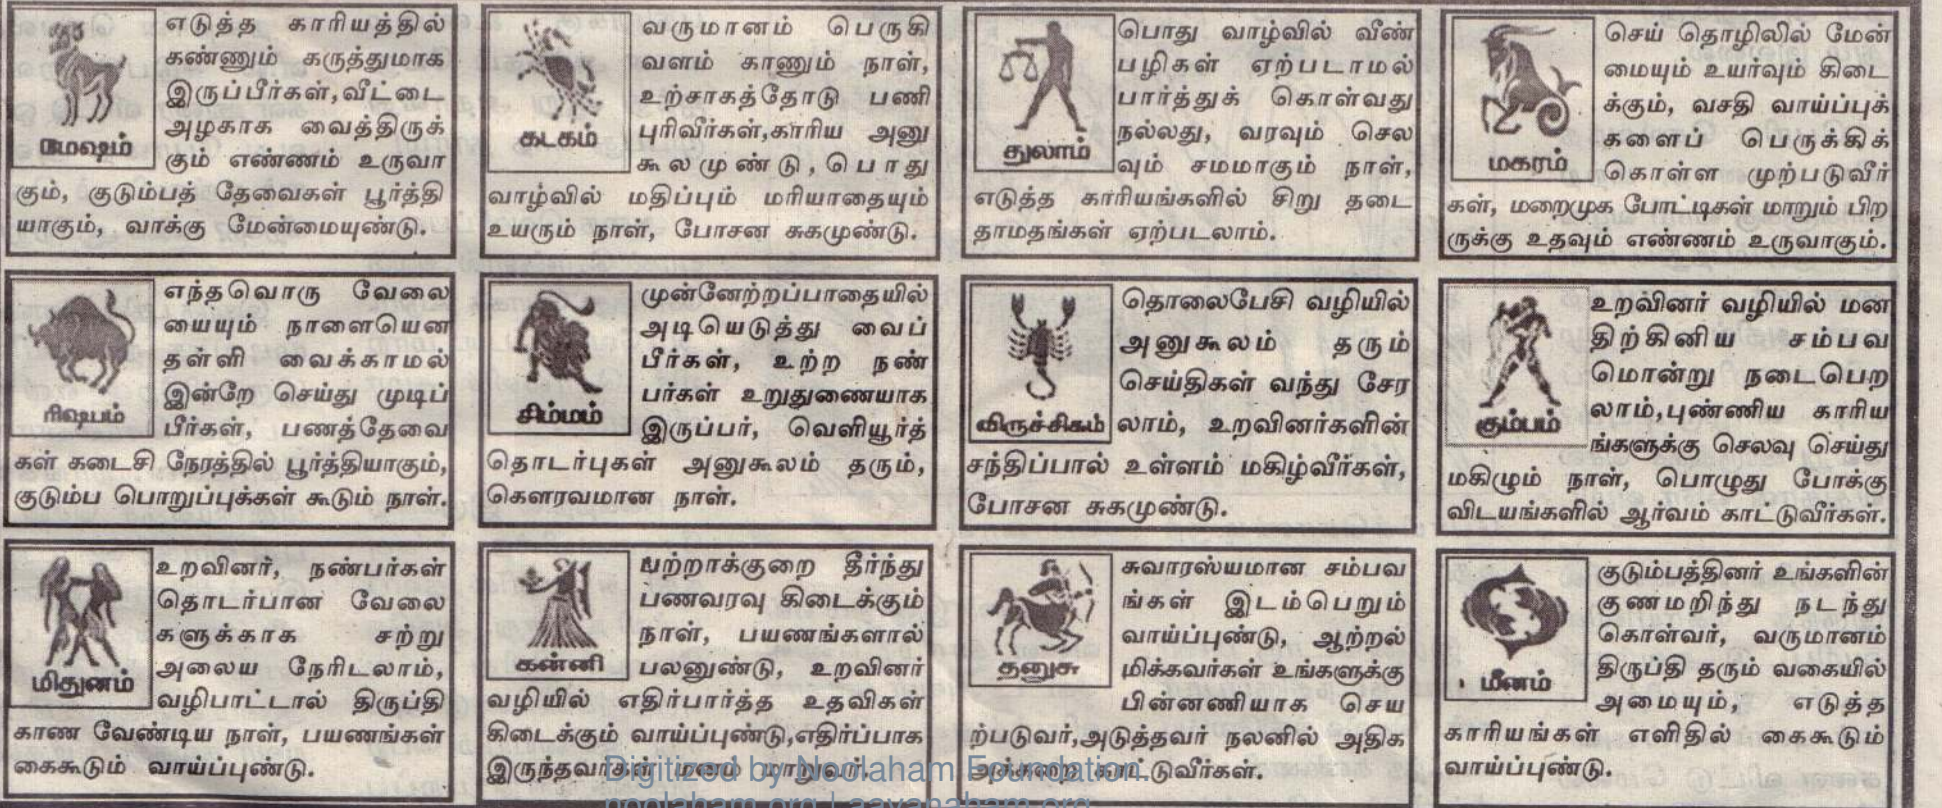 எடுத்த காரியத்தில்
கண்ணும் கருத்துமாக
இருப்பீர்கள்,வீட்டை
அழகாக வைத்திருக்
கும் எண்ணம் உருவா
கும், குடும்பத் தேவைகள் பூர்த்தி
யாகும், வாக்கு மேன்மையுண்டு.
மேஷம்
எந்தவொரு வேலை
யையும் நாளையென
தள்ளி வைக்காமல்
இன்றே செய்து முடிப்
பீர்கள், பணத்தேவை
கள் கடைசி நேரத்தில் பூர்த்தியாகும்,
குடும்ப பொறுப்புக்கள் கூடும் நாள்.
ரிஷபம்
உறவினர், நண்பர்கள்
தொடர்பான வேலை
களுக்காக சற்று
அலைய நேரிடலாம்,
வழிபாட்டால் திருப்தி
காண வேண்டிய நாள், பயணங்கள்
கைகூடும் வாய்ப்புண்டு.
மிதுனம்
வருமானம் பெருகி
வளம் காணும் நாள்,
உற்சாகத்தோடு பணி
புரிவீர்கள்,காரிய அனு
கூலமுண்டு,பொது
வாழ்வில் மதிப்பும் மரியாதையும்
உயரும் நாள், போசன சுகமுண்டு.
கடகம்
முன்னேற்றப்பாதையில்
அடியெடுத்து வைப்
பீர்கள், உற்ற நண்
பர்கள் உறுதுணையாக
இருப்பர், வெளியூர்த்
தொடர்புகள் அனுகூலம் தரும்,
கௌரவமான நாள்.
சிம்மம்
பற்றாக்குறை தீர்ந்து
பணவரவு கிடைக்கும்
நாள், பயணங்களால்
பலனுண்டு, உறவினர்
வழியில் எதிர்பார்த்த உதவிகள்
கிடைக்கும் வாய்ப்புண்டு,எதிர்ப்பாக
இருந்தவர்கள் மனம் மாறுவர்.
கன்னி
பொது வாழ்வில் வீண்
பழிகள் ஏற்படாமல்
பார்த்துக் கொள்வது
நல்லது, வரவும் செல
வும் சமமாகும் நாள்,
எடுத்த காரியங்களில் சிறு தடை
தாமதங்கள் ஏற்படலாம்.
துலாம்
தொலைபேசி வழியில்
அனுகூலம் தரும்
செய்திகள் வந்து சேர
லாம், உறவினர்களின்
சந்திப்பால் உள்ளம் மகிழ்வீர்கள்,
போசன சுகமுண்டு.
விருச்சிகம்
சுவாரஸ்யமான சம்பவ
ங்கள் இடம்பெறும்
வாய்ப்புண்டு, ஆற்றல்
மிக்கவர்கள் உங்களுக்கு
பின்னணியாக செய
ற்படுவர்,அடுத்தவர் நலனில் அதிக
அக்கறை காட்டுவீர்கள்.
தனுசு
செய் தொழிலில் மேன்
மையும் உயர்வும் கிடை
க்கும், வசதி வாய்ப்புக்
களைப் பெருக்கிக்
கொள்ள முற்படுவீர்
கள், மறைமுக போட்டிகள் மாறும் பிற
ருக்கு உதவும் எண்ணம் உருவாகும்.
மகரம்
உறவினர் வழியில் மன
திற்கினிய சம்பவ
மொன்று நடைபெற
லாம்,புண்ணிய காரிய
ங்களுக்கு செலவு செய்து
மகிழும் நாள், பொழுது போக்கு
விடயங்களில் ஆர்வம் காட்டுவீர்கள்.
கும்பம்
குடும்பத்தினர் உங்களின்
குணமறிந்து நடந்து
கொள்வர், வருமானம்
திருப்தி தரும் வகையில்
அமையும், எடுத்த
காரியங்கள் எளிதில் கைகூடும்
வாய்ப்புண்டு.
மீனம்
Digitized by Noolaham Foundation.
noolaham.org | aavanaham.org